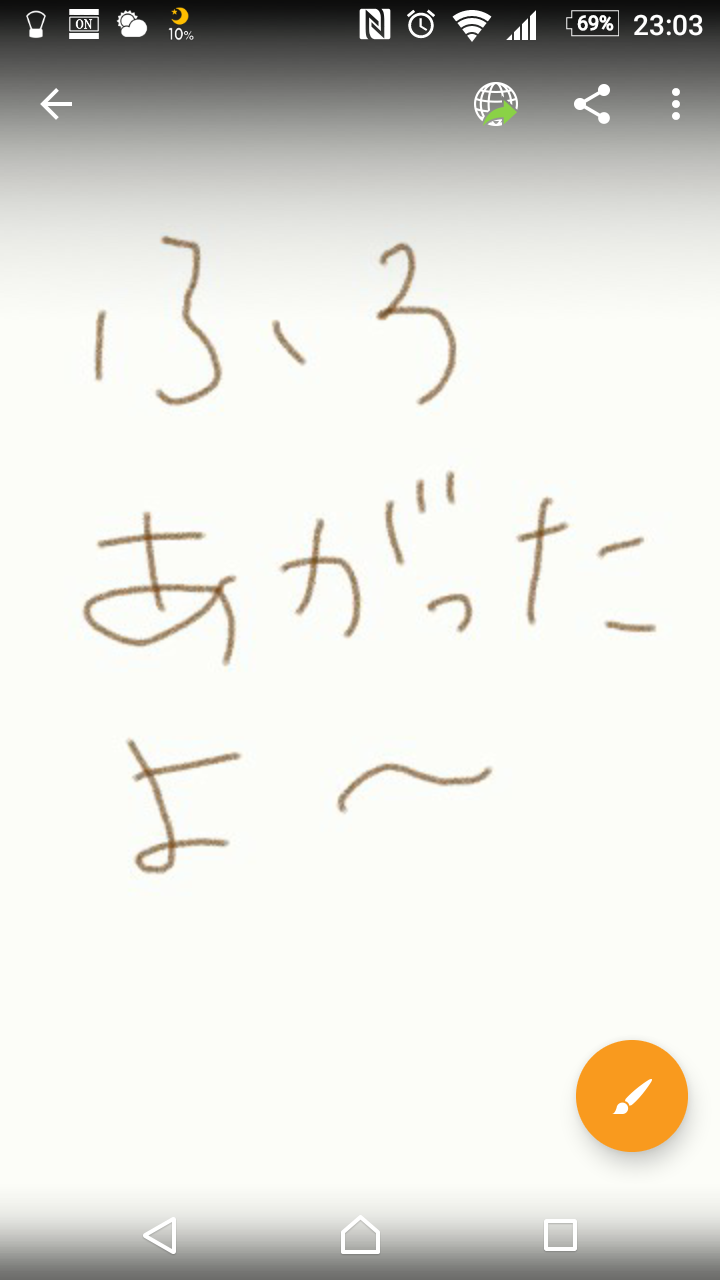 ON 10% 69% 23:03
ふろ
あがった
よ～